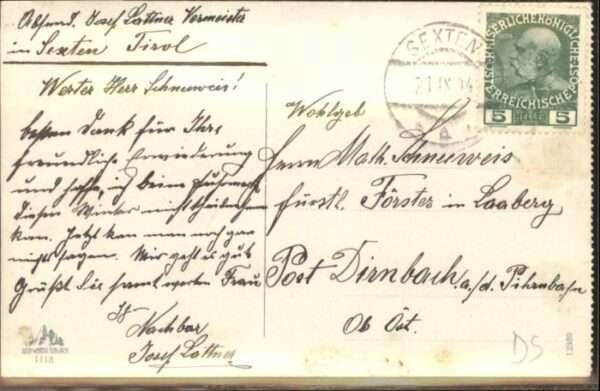 Absend. Josef Lattner Vermeister
in Sexten Tirol
Werter Herr Schneeweis!
besten Dank für Ihre
freundliche Erwiederung
und hoffe, ich
diesen Winter nicht
kan. Jetzt kan man noch gar
nichts sagen. Mir geht es gut
Grüßt Sie samt werten Frau
Ihr
Nachbar
Josef Lattner
SEXTEN
21 IX 14
a
KAISERLICHE KÖNIGLICHE
ÖSTERREICHISCHE POST
5 HELLER 5
Wohlgeb
Herrn Math. Schneeweis
fürstl. Förster in Laaberg
Post Dirnbach a/d. Pihrnbahn
Ob Öst.
1118
12989
DS